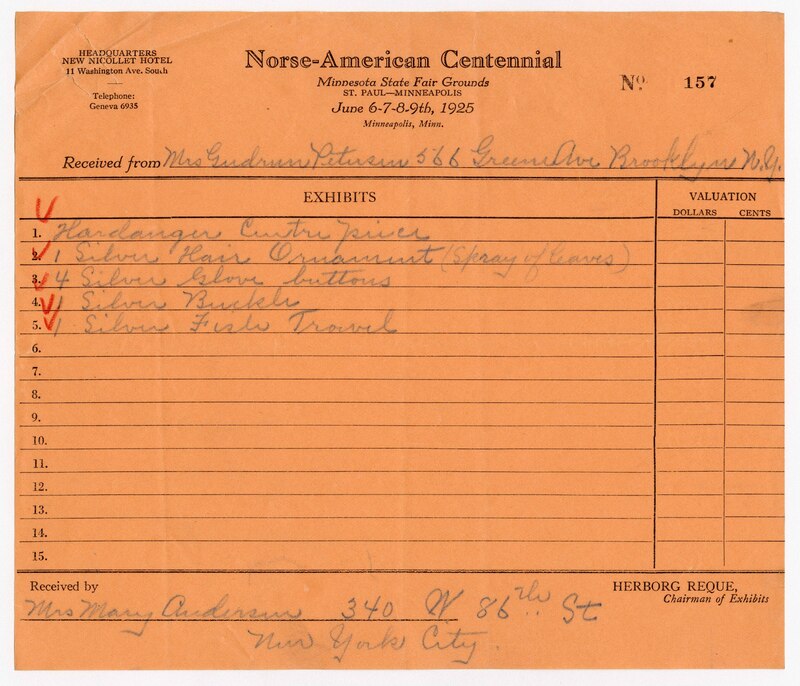 HEADQUARTERS
NEW NICOLLET HOTEL
11 Washington Ave. South
Telephone:
Geneva 6935
Norse-American Centennial
Minnesota State Fair Grounds
ST. PAUL—MINNEAPOLIS
June 6-7-8-9th, 1925
Minneapolis, Minn.
No. 157
Received from Mrs Gudrun Petersen 566 Greene Ave Brooklyn N.Y.
EXHIBITS
VALUATION
DOLLARS CENTS
1. Hardanger Centre piece
2. 1 Silver Hair Ornament (Spray of leaves)
3. 4 Silver Glove buttons
4. 1 Silver Buckle
5. 1 Silver Fish Trowel
6.
7.
8.
9.
10.
11.
12.
13.
14.
15.
Received by
HERBORG REQUE,
Chairman of Exhibits
Mrs Mary Anderson 340 W 86th St
New York City.